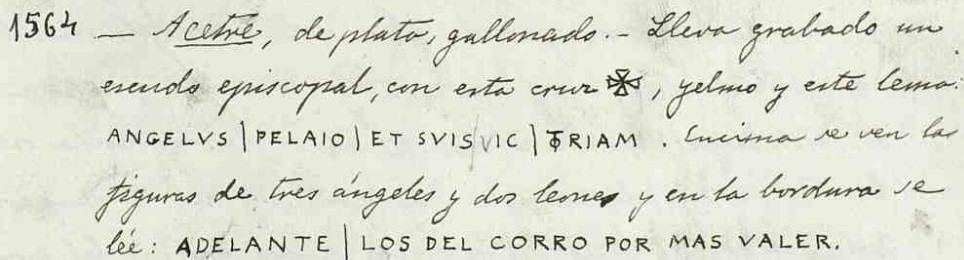 1564 — Acetre, de plata, gallonado. - Lleva grabado un
escudo episcopal, con esta cruz ✠, yelmo y este lema:
ANGELVS | PELAIO | ET SVIS | VIC | TORIAM. Encima se ven las
figuras de tres ángeles y dos leones y en la bordura se
lée: ADELANTE | LOS DEL CORRO POR MAS VALER.